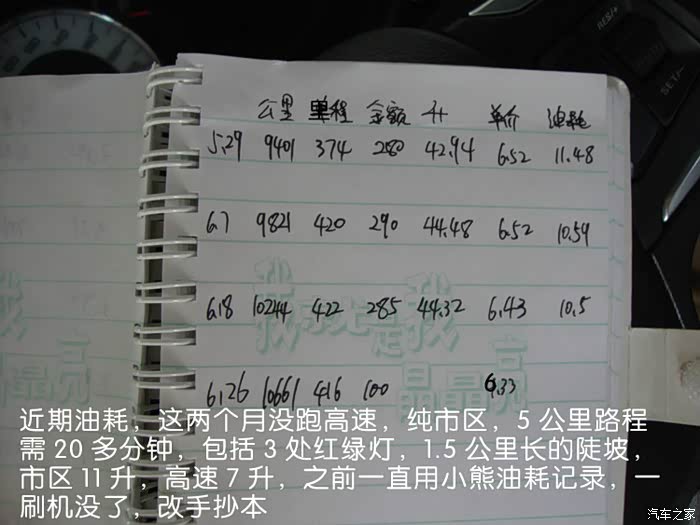 RES/+
SET/-
公里 里程 金额 升 单价 油耗
5.29 9401 374 280 42.94 6.52 11.48
6.7 9821 420 290 44.48 6.52 10.59
6.18 10244 422 285 44.32 6.43 10.5
6.26 10661 416 100 6.33
我就是我
晶晶亮
近期油耗，这两个月没跑高速，纯市区，5 公里路程
需 20 多分钟，包括 3 处红绿灯，1.5 公里长的陡坡，
市区 11 升，高速 7 升，之前一直用小熊油耗记录，一
刷机没了，改手抄本
汽车之家